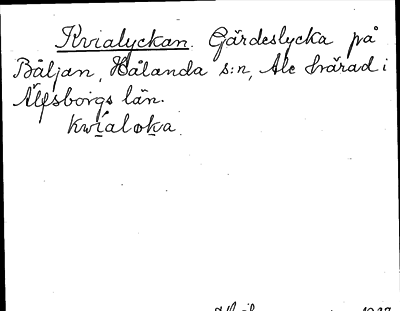 Kvialyckan. Gärdeslycka på
Båljan, Hålanda s:n, Ale härad i
Älfsborgs län.
kwialoka